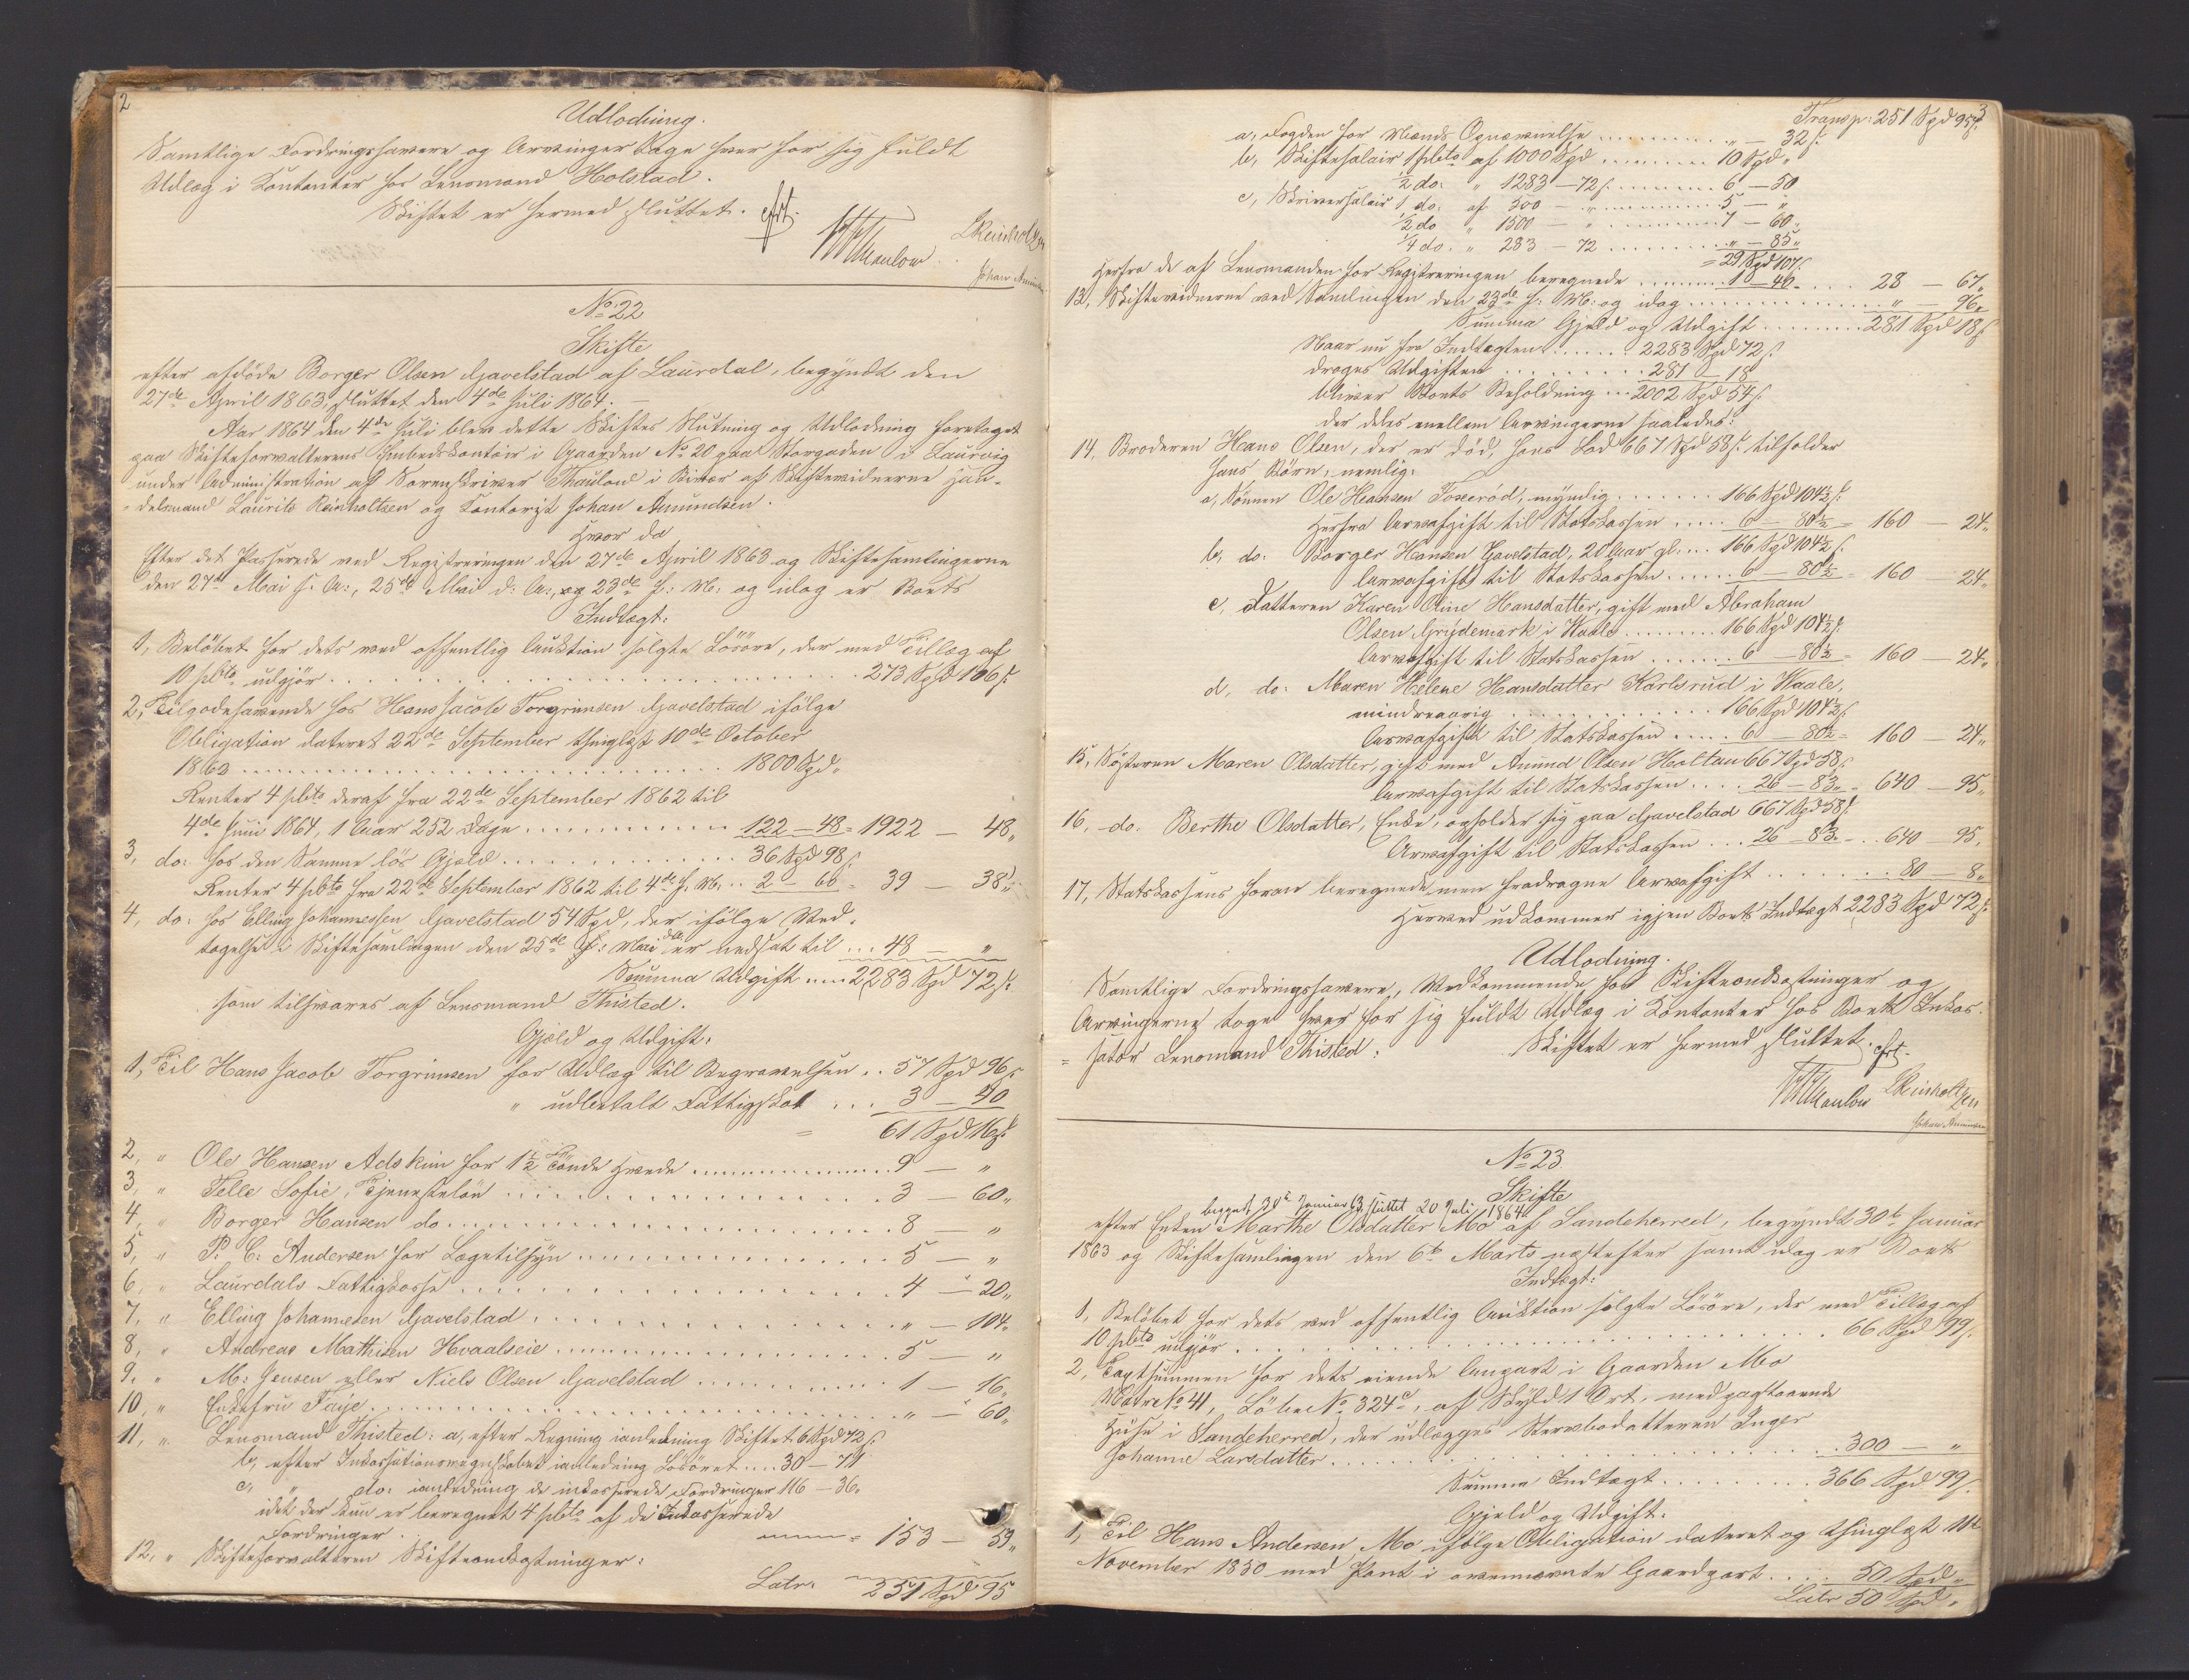 2
Udlodning.
Samtlige Fordringshavere og Arvinger tage hver for sig fuldt
Udlæg i Contanter hos Lensmand Holstad.
Skiftet er hermed sluttet.
Thaulow
L Reinholtzen
Johan Amundsen
No 22
Skifte
efter afdöde Borger Olsen Gjavelstad af Laurdal, begyndt den
27de April 1863, sluttet den 4de Juli 1864. —
Aar 1864 den 4de Juli blev dette Skiftes Slutning og Udlodning foretaget
paa Skifteforvalterens Embedskontoir i Gaarden No 20 paa Storgaden i Laurvig
under Administration af Sorenskriver Thaulow i Bivær af Skiftevidnerne Han-
delsmand Laurits Reinholtsen og Contorist Johan Amundsen.
Hvor da
Efter det Passerede ved Registreringen den 27de April 1863 og Skiftesamlingerne
den 27de Mai s. A., 25de Mai d: A:, og 23de f: M: og idag er Boets
Indtægt:
1, Belöbet for dets ved offentlig Auktion solgte Lösöre, der med Tillæg af
10 pCto udgjör . . . 273 Spd 106 s.
2, Tilgodehavende hos Hans Jacob Torgrimsen Gjavelstad ifölge
Obligation dateret 22de September thinglæst 10de October
1862 . . . 1800 Spd „
Renter 4 pCto deraf fra 22de September 1862 til
4de Juni 1864, 1 Aar 252 Dage . . . 122 – 48 = 1922 — 48„
3, do: hos den Samme lös Gjæld . . . 36 Spd 98 s.
Renter 4 pCto fra 22de September 1862 til 4de f. M. . . 2 – 60 = 39 — 38„
4, do: hos Elling Johannessen Gjavelstad 54 Spd, der ifölge Ved-
tagelse i Skiftesamlingen den 25de Mai er nedsat til . . . 48 — „
Summa Udgift . . . 2283 Spd 72 s.
som tilsvares af Lensmand Thisted.
Gjæld og Udgift:
1, Til Hans Jacob Torgrimsen for Udlæg til Begravelsen . . 57 Spd 96 s.
„ udbetalt Fattigskat . . . 3 – 40
= 61 Spd 16 s.
2, „ Ole Hansen Adskim for 1½ Tönde Hvede . . . 9 — „
3, „ Telle Sofie, Tjenesteløn . . . 3 — 60„
4, „ Borger Hansen do . . . 8 — „
5, „ P. C. Andersen for Lægetilsyn . . . 5 — „
6, „ Laurdals Fattigkasse . . . 4 — 20„
7, „ Elling Johannesen Gjavelstad . . . „ — 104„
8, „ Andreas Mathisen Hvaalseie . . . 5 — „
9, „ M: Jensen eller Niels Olsen Gjavelstad . . . 1 — 16„
10, „ Enkefru Faye . . . „ — 60„
11, „ Lensmand Thisted: a, efter Regning ianledning Skiftet 6 Spd 72 s.
b, efter Inkassationsregnskabet ianledning Lösöret . . . 30 – 71
c, „ do: ianledning de inkasserede Fordringer 116 – 36„
idet der kun er beregnet 4 pCto af de Inkasserede
Fordringer . . . = 153 — 59„
12, „ Skifteforvalteren Skifteomkostninger:
Latr. 251 Spd 95
3
Transp: 251 Spd 95 s.
a, Fogden for Mænds Opnævnelse . . . „ — 32 s.
b, Skiftesalair 1 pCto af 1000 Spd . . . 10 Spd „
½ do: „ 1283 – 72 s. . . . 6 – 50
c, Skriversalair 1 do. af 500 – „ . . . 5 – „
½ do „ 1500 – „ . . . 7 – 60„
¼ do. „ 283 – 72 . . . „ – 85„
= 29 Spd 107 s.
Herfra de af Lensmanden for Registreringen beregnede . . . 1 – 40„ . . . 28 — 67„
13, Skiftevidnerne ved Samlingen den 23de f: M: og idag . . . „ — 96„
Summa Gjæld og Udgift . . . 281 Spd 18 s.
Naar nu fra Indtægten . . . 2283 Spd 72 s.
drages Udgiften . . . 281 – 18
bliver Boets Beholdning . . . 2002 Spd 54 s.
der deles mellem Arvingerne saaledes:
14, Broderen Hans Olsen, der er död, hans Lod 667 Spd 58 s. tilfalder
hans Börn, nemlig:
a, Sönnen Ole Hansen Foxeröd, myndig . . . 166 Spd 104½ s.
Herfra Arveafgift til Statskassen . . . 6 – 80½ = 160 — 24„
b, do: Borger Hansen Gjavelstad, 20 Aar gl. . . 166 Spd 104½ s.
Arveafgift til Statskassen . . . 6 – 80½ = 160 — 24„
c, Datteren Karen Oline Hansdatter, gift med Abraham
Olsen Grydemark i Vaale . . . 166 Spd 104½ s.
Arveafgift til Statskassen . . . 6 – 80½ = 160 — 24„
d, do: Maren Helene Hansdatter Karlsrud i Vaale,
mindreaarig . . . 166 Spd 104½ s.
Arveafgift til Statskassen . . . 6 – 80½ = 160 — 24„
15, Søsteren Maren Olsdatter, gift med Amund Olsen Holtan 667 Spd 58 s.
Arveafgift til Statskassen . . . 26 – 83„ = 640 — 95„
16, do: Berthe Olsdatter, Enke, opholder sig paa Gjavelstad 667 Spd 58 s.
Arveafgift til Statskassen . . . 26 – 83 . . 640 – 95„
17, Statskassens foran beregnede men fradragne Arveafgift . . . 80 — 8„
Herved udkommer igjen Boets Indtægt 2283 Spd 72 s.
Udlodning.
Samtlige Fordringshavere, Vedkommende for Skifteomkostninger og
Arvingerne toge hver for sig fuldt Udlæg i Contanter hos Boets Inkas-
sator Lensmand Thisted.
Skiftet er hermed sluttet.
Thaulow
L Reinholtzen
Johan Amundsen
No 23
Skifte
begynt 30te Januar 63, sluttet 20 Juli 1864
efter Enken Marthe Olsdatter Mo af Sandeherred, begyndt 30te Januar
1863 og Skiftesamlingen den 6te Marts næstefter samt idag er Boets
Indtægt:
1, Belöbet for dets ved offentlig Auktion solgte Lösöre, der med Tillæg af
10 pCto udgjör . . . 66 Spd 99 s.
2, Taxtsummen for dets eiende Anpart i Gaarden Mo
Matr No 41, Löbe No 324c, af Skyld 1 Ort, med paastaaende
Huse i Sandeherred, der udlægges Stervbodatteren Inger
Johanne Larsdatter . . . 300 — „
Summa Indtægt . . . 366 Spd 99 s.
Gjæld og Udgift:
1, Til Hans Andersen Mo ifölge Obligation dateret og thinglæst 11te
November 1850 med Pant i ovennævnte Gaardpart . . . 50 Spd „
Latr 50 Spd „